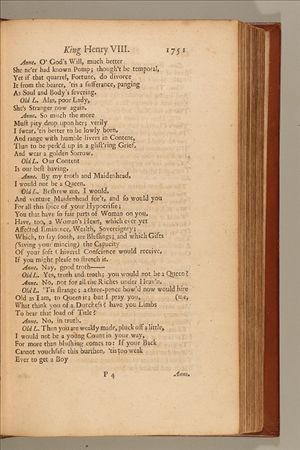 King Henry VIII. 1751
Anne. O' God's Will, much better
She ne'er had known Pomp; though't be temporal,
Yet if that quarrel, Fortune, do divorce
It from the bearer, 'tis a sufferance, panging
As Soul and Body's severing.
Old L. Alas, poor Lady,
She's Stranger now again.
Anne. So much the more
Must pity drop upon her; verily
I swear, 'tis better to be lowly born,
And range with humble livers in Content,
Than to be perk'd up in a glist'ring Grief,
And wear a golden Sorrow.
Old L. Our Content
Is our best having.
Anne. By my troth and Maidenhead,
I would not be a Queen.
Old L. Beshrew me, I would,
And venture Maidenhead for't, and so would you
For all this spice of your Hypocrisie;
You that have so fair parts of Woman on you,
Have, too, a Woman's Heart, which ever yet
Affected Eminence, Wealth, Sovereignty;
Which, to say sooth, are Blessings; and which Gifts
(Saving your mincing) the Capacity
Of your soft Chiverel Conscience would receive,
If you might please to stretch it.
Anne. Nay, good troth——
Old L. Yes, troth and troth; you would not be a Queen?
Anne. No, not for all the Riches under Heav'n.
Old L. 'Tis strange; a three-pence bow'd now would hire
Old as I am, to Queen it; but I pray you, (me,
What think you of a Dutchess? have you Limbs
To bear that load of Title?
Anne. No, in truth.
Old L. Then you are weakly made, pluck off a little,
I would not be a young Count in your way,
For more than blushing comes to: If your Back
Cannot vouchsafe this burthen, 'tis too weak
Ever to get a Boy
P 4 Anne.